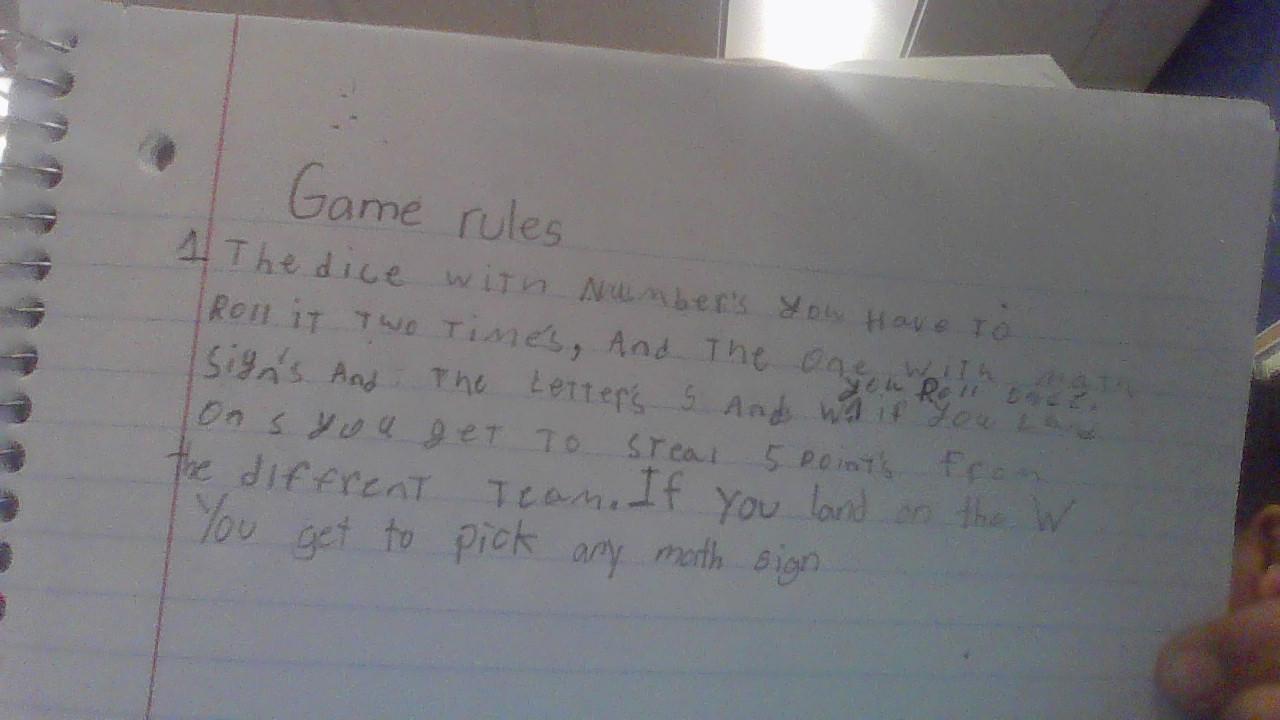 Game rules
1 The dice with Number's you Have To
Roll it Two Time's, And The one with math
you Roll once.
Sign's And The Letter's S And W if you Land
On s you get To steal 5 point's from
the diffrent Team. If you land on the W
You get to pick any math sign